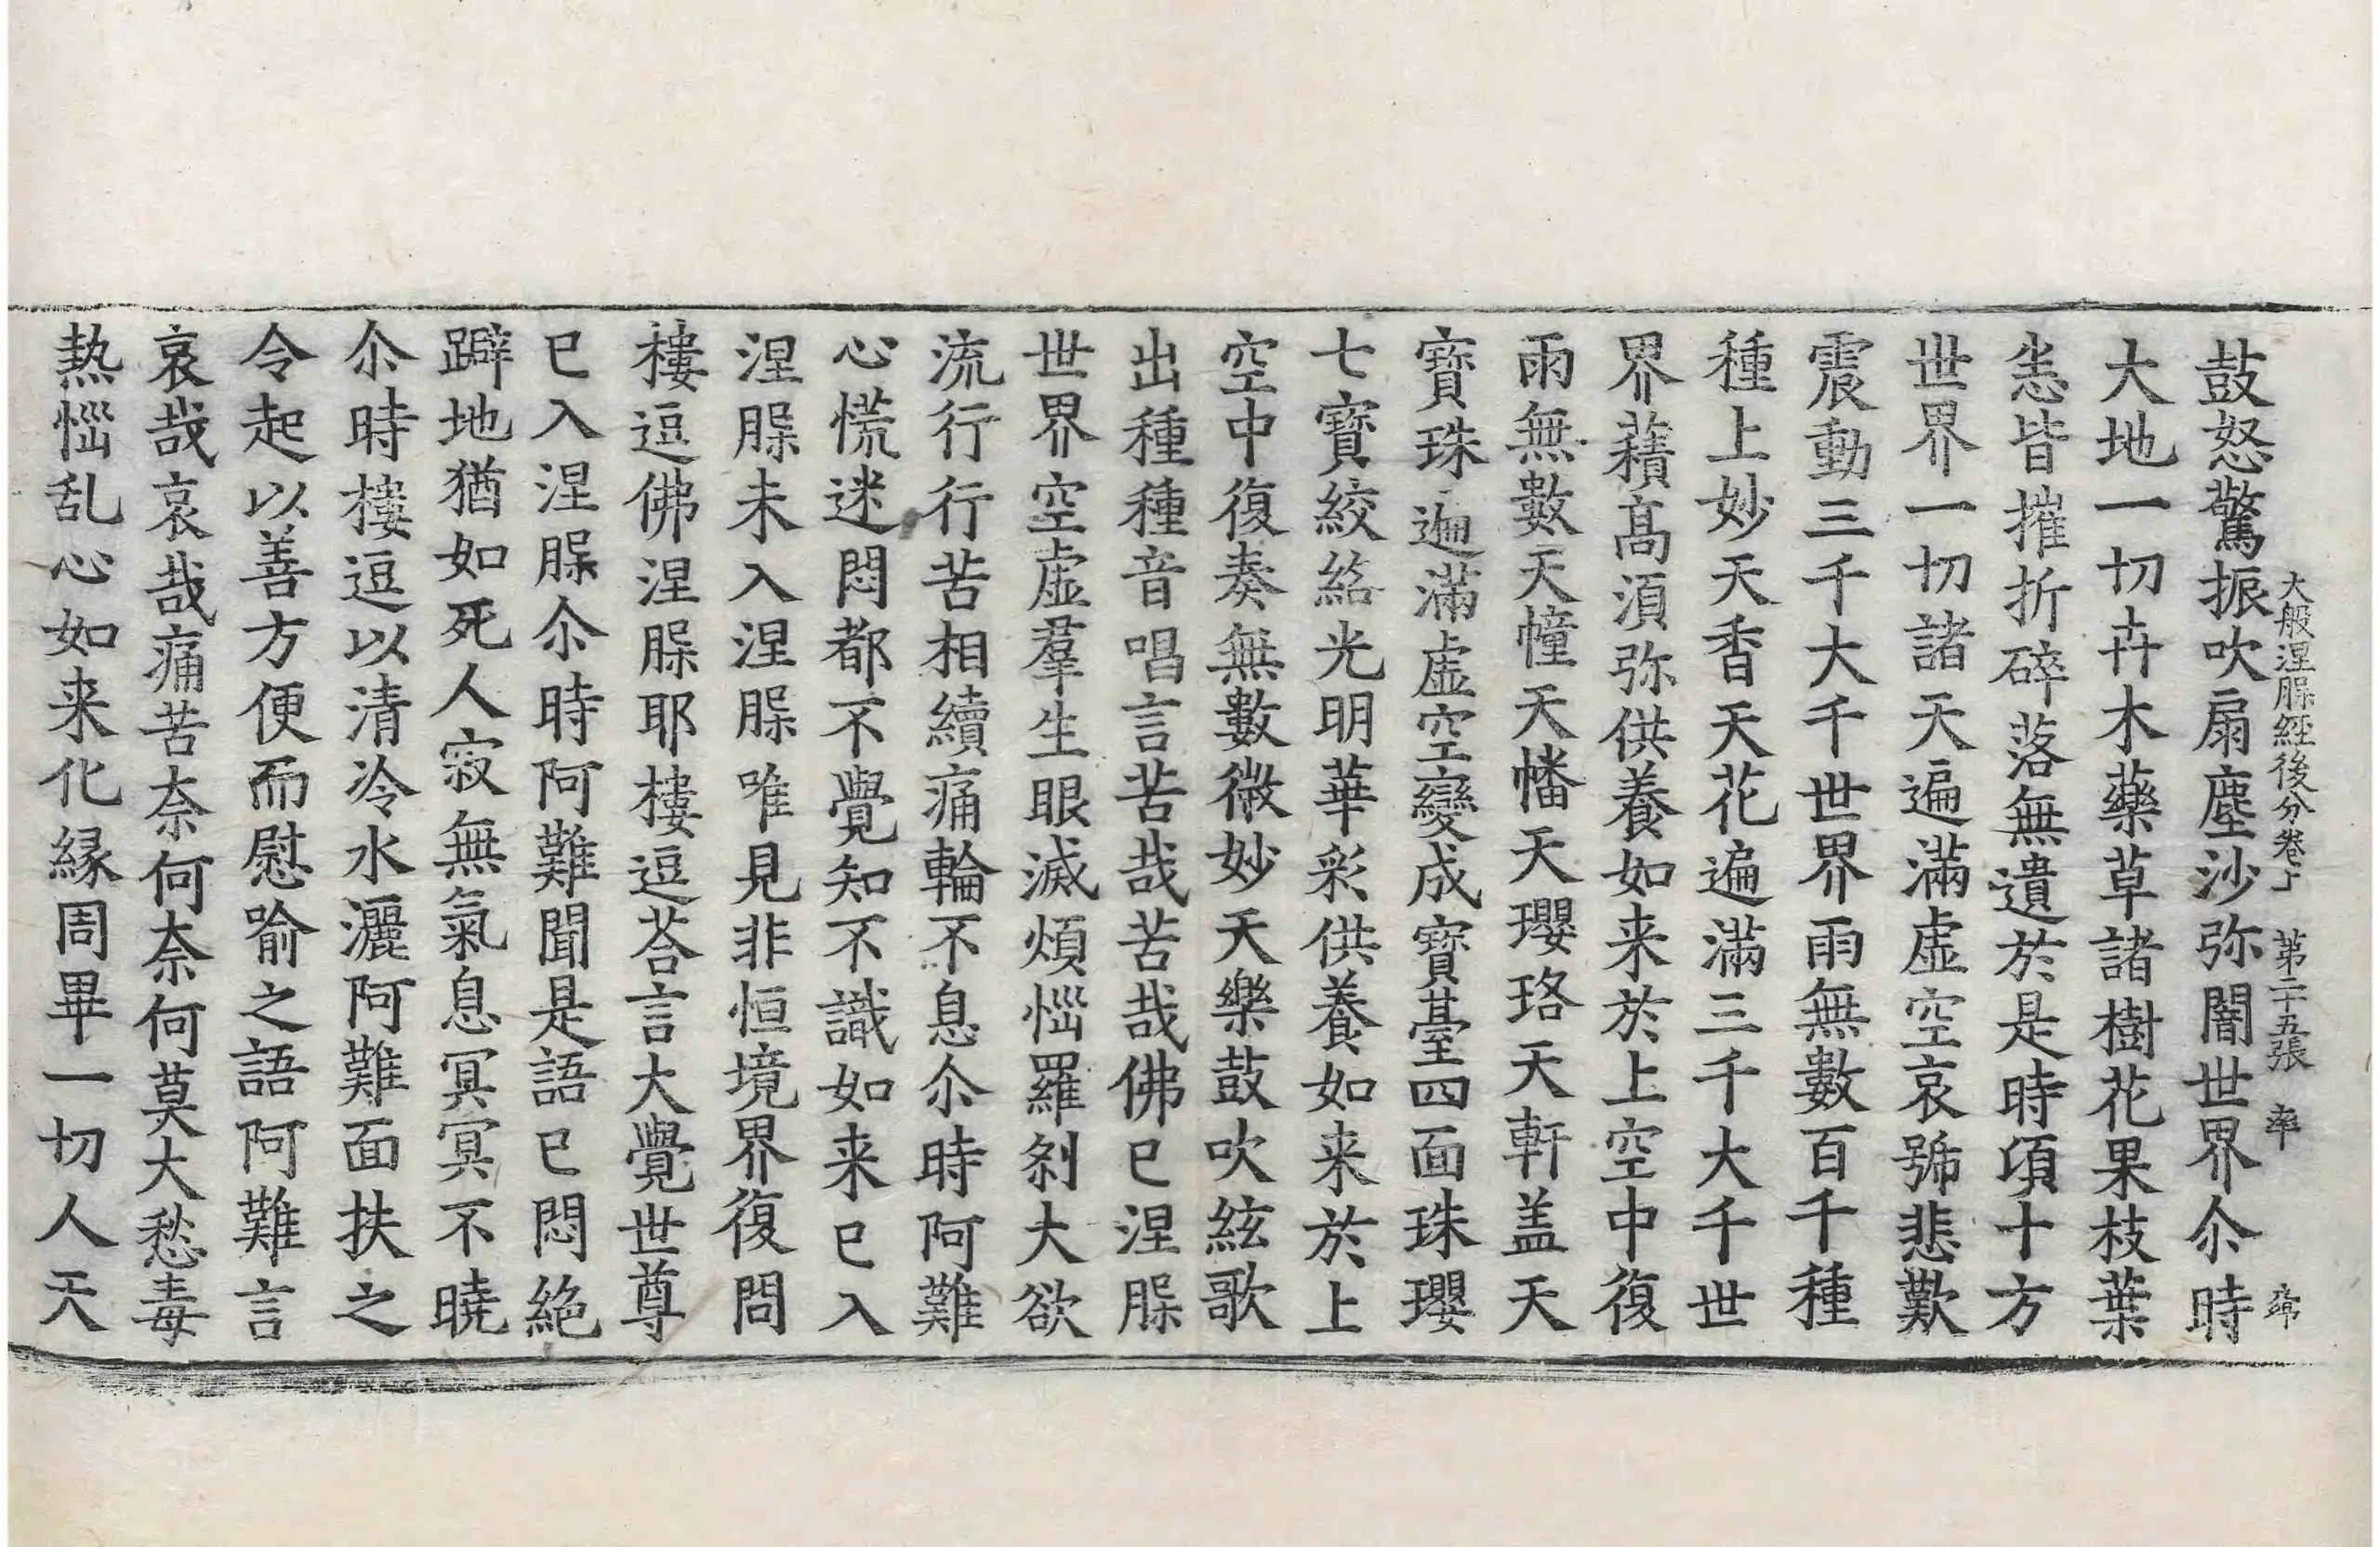 大般涅槃經後分卷上 第二十五張 率
鼓怒驚振吹扇塵沙弥闇世界尒時
大地一切卉木藥草諸樹花果枝葉
悉皆摧折碎落無遺於是時頃十方
世界一切諸天遍滿虛空哀號悲歎
震動三千大千世界雨無數百千種
種上妙天香天花遍滿三千大千世
界積高湏弥供養如来於上空中復
雨無數天幢天幡天瓔珞天軒盖天
寶珠遍滿虛空變成寶臺四面珠瓔
七寶絞絡光明華彩供養如来於上
空中復奏無數微妙天樂鼓吹絃歌
出種種音唱言苦哉苦哉佛已涅槃
世界空虛羣生眼滅煩惱羅剎大欲
流行行苦相續痛輪不息尒時阿難
心慌迷悶都不覺知不識如来已入
涅槃未入涅槃唯見非恒境界復問
樓逗佛涅槃耶樓逗荅言大覺世尊
已入涅槃尒時阿難聞是語已悶絕
躃地猶如死人寂無氣息冥冥不曉
尒時樓逗以清冷水灑阿難面扶之
令起以善方便而慰喻之語阿難言
哀哉哀哉痛苦奈何奈何莫大愁毒
熱惱乱心如来化縁周畢一切人天